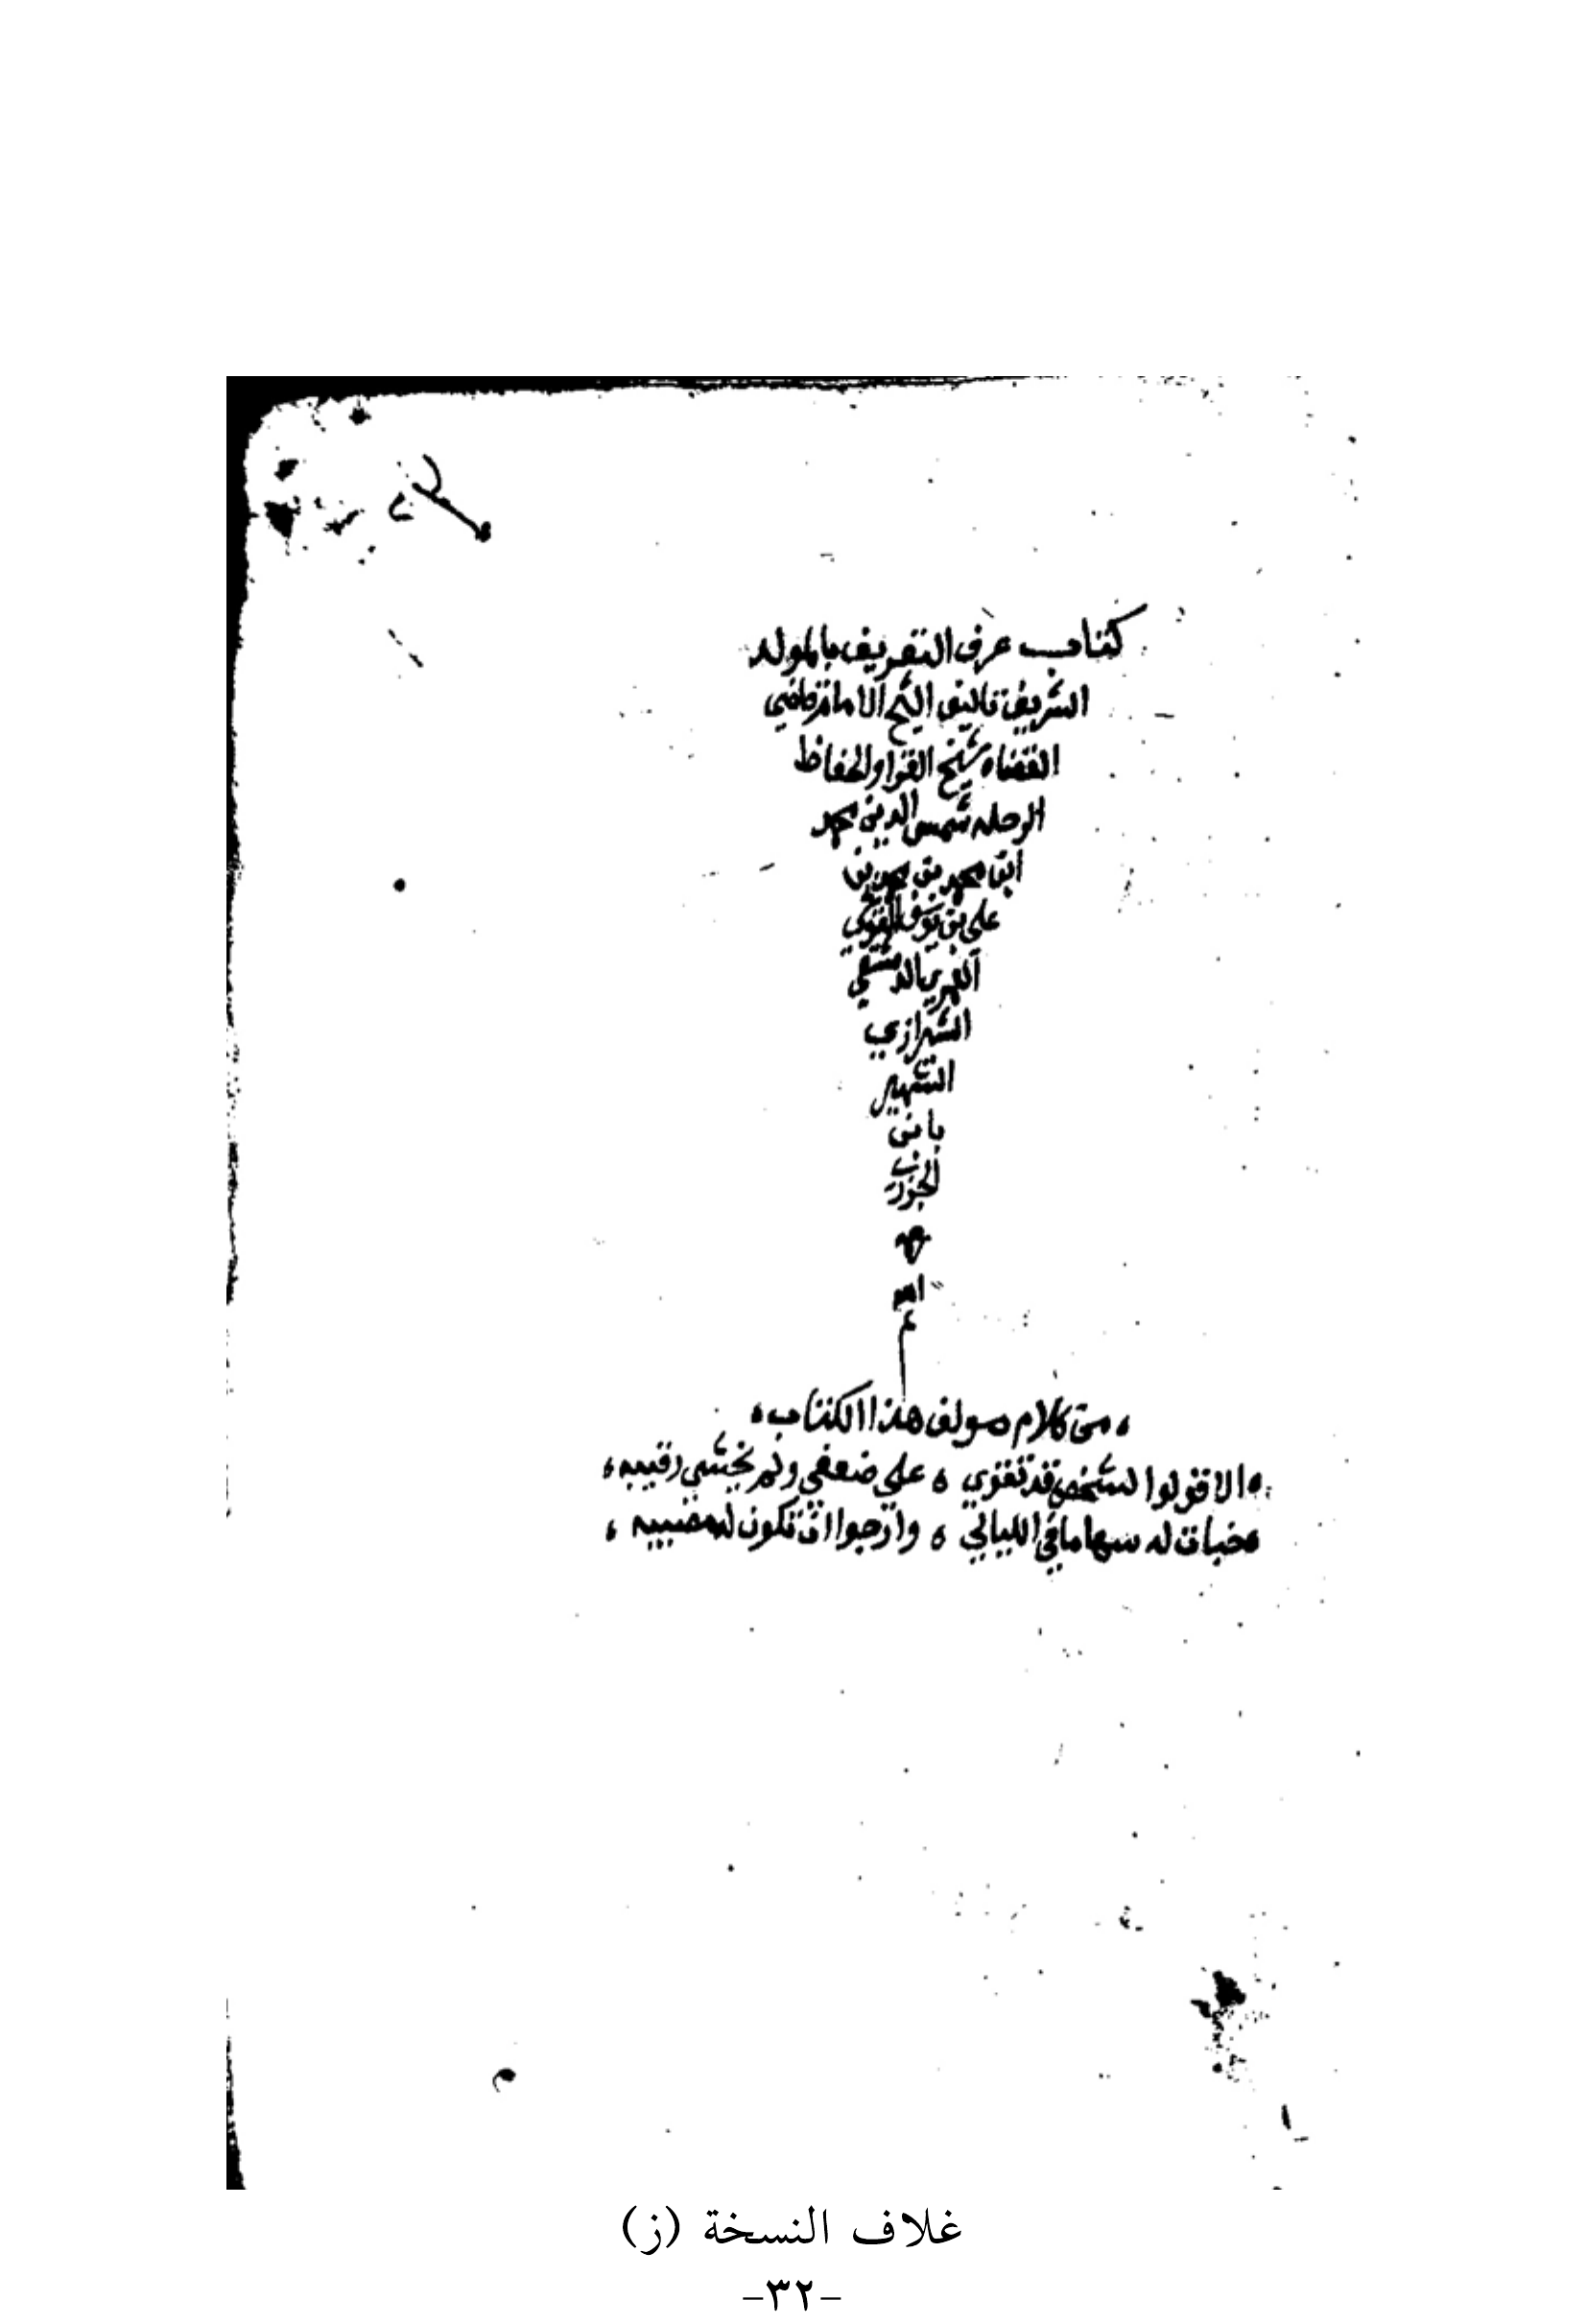 كتاب عرف التعريف بالمولد
الشريف تاليف الشيخ الامام قاضي
القضاه شيخ القرا والحفاظ
الرحله شمس الدين محمد
ابن محمد بن محمد بن
علي بن يوسف
الدمشقي
الشيرازي
الشهير
بابن
الجزري
من كلام مولف هذا الكتاب
الا قولوا لشخص قد تقوي ، علي ضعفي ولم يخشي رقيبه ،
خبات له سهاما في الليالي ، وارجوا ان تكون له مصيبه ،
غلاف النسخة (ز)
-٣٢-